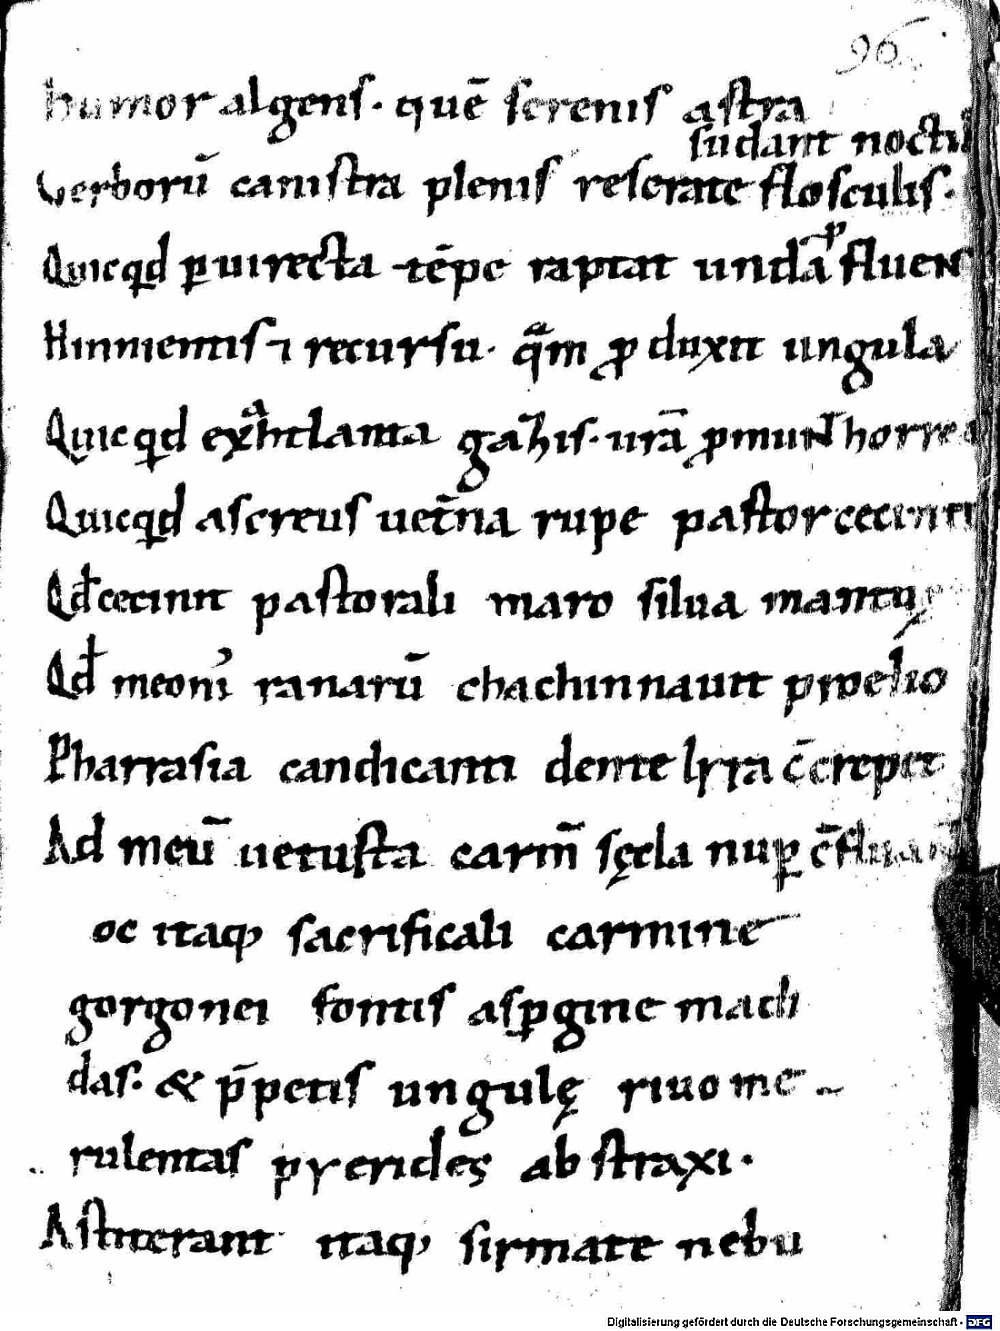 96
humor algens. quē serenis astra
sudant noctib
Verborū canistra plenis reserate flosculis.
Quicqd puirecta tēpe raptat unda fluen
Hinnientis ⁊ recursu. quam produxit ungula
Quicqd exhtlanta gahis. urā pmunt horrea
Quicqd ascreus uetna rupe pastor cecinit
Qd cecinit pastorali maro silua mantuę
Qd meoni ranarū chachinnauit proelio
Pharrasia candicanti dente lyra c̄crepet
Ad meū uetusta carm̄ sęcla nup c̄fluant
oc itaq; sacrificali carmine
gorgonei fontis aspgine madi
das. & p̄petis ungulę riuo me
rulentas pyerides abstraxi.
Astiterant itaq; sirmate nebu
Digitalisierung gefördert durch die Deutsche Forschungsgemeinschaft - DFG